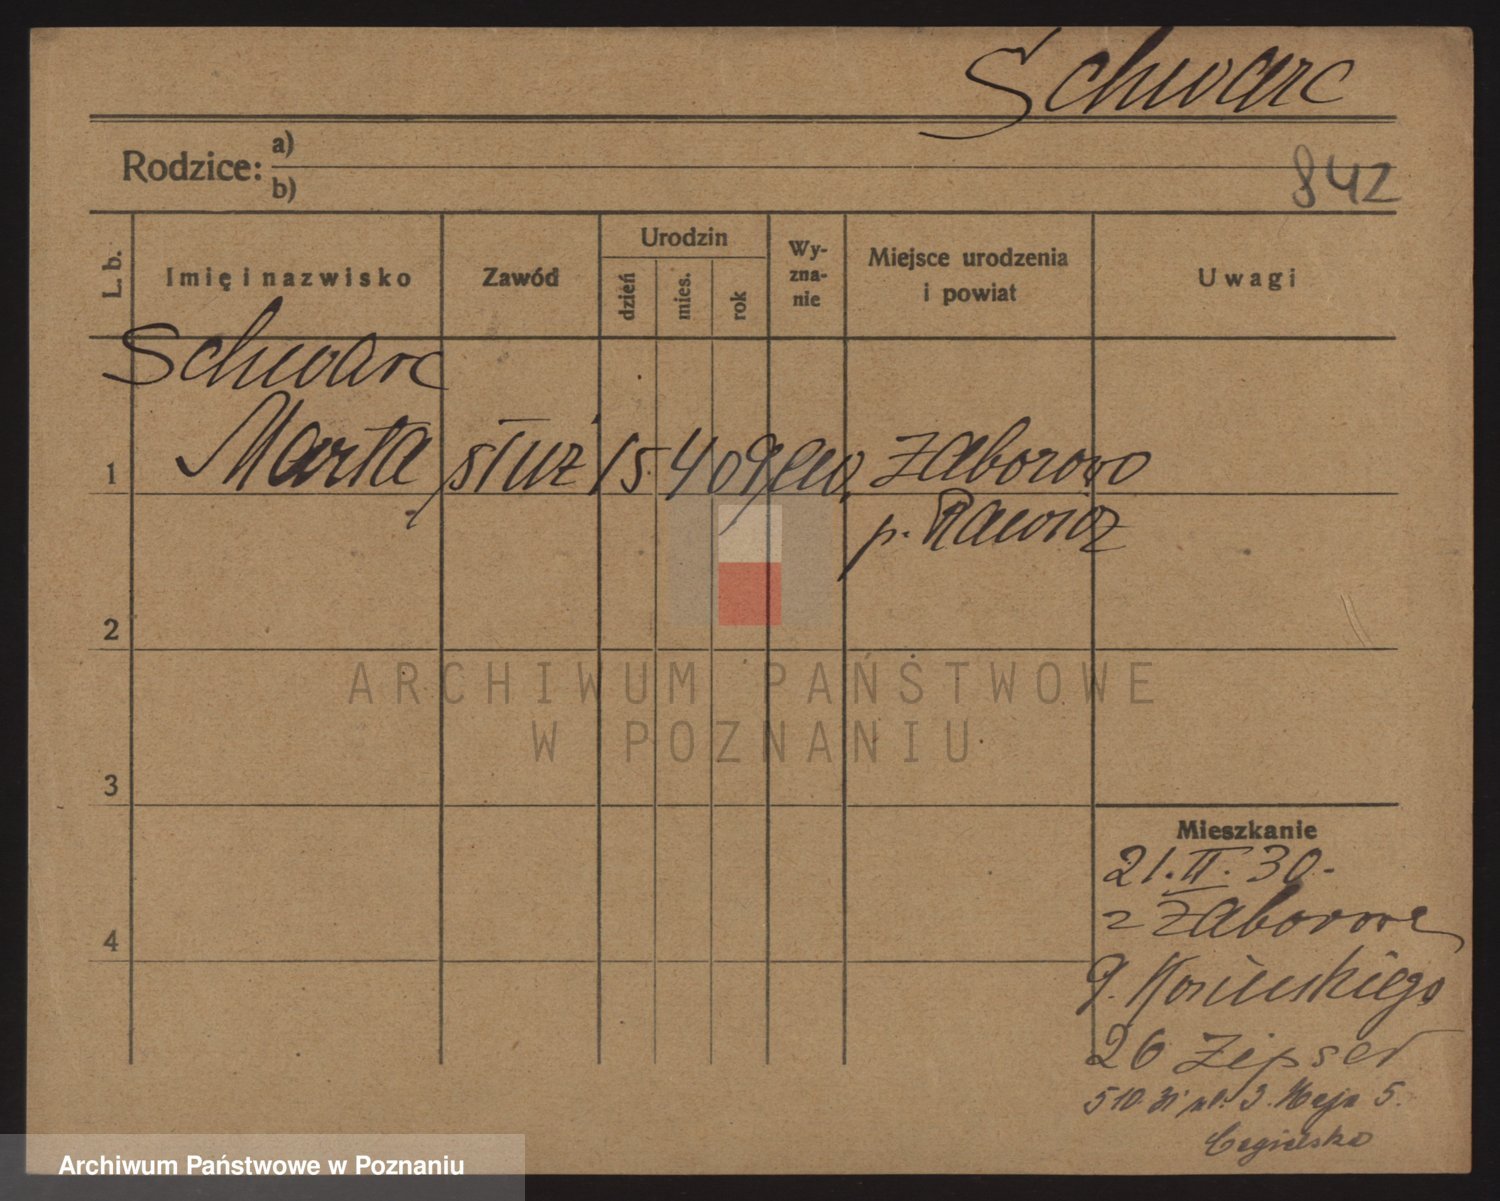 Schwarc
Rodzice: a)
b)
842
L. b.
Imię i nazwisko
Zawód
Urodzin
dzień
mies.
rok
Wy-
zna-
nie
Miejsce urodzenia
i powiat
Uwagi
Schwarc
1 Marta służ 15 4 09 ew. Zaborowo
p. Rawicz
2
ARCHIWUM PAŃSTWOWE
W POZNANIU
3
Mieszkanie
21. II. 30.
z Zaborowa
4
26 Zipser
5 10 31 ul. 3. Maja 5.
Cegielska
Archiwum Państwowe w Poznaniu